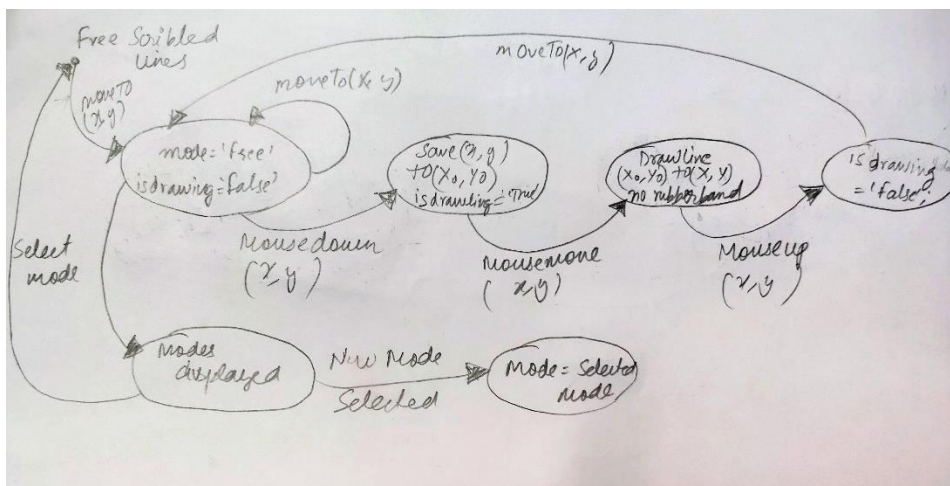 Free Scribbled
lines
moveTo(x,y)
moveTo(x,y)
moveTo
(x,y)
mode='free'
isdrawing='false'
Save(x,y)
to(x0,y0)
isdrawing='True'
Drawline
(x0,y0) to(x,y)
no rubberband
is drawing
='false'
Mousedown
(x,y)
Mousemove
(x,y)
Mouseup
(x,y)
Select
mode
Modes
displayed
New Mode
Selected
Mode = Selected
mode